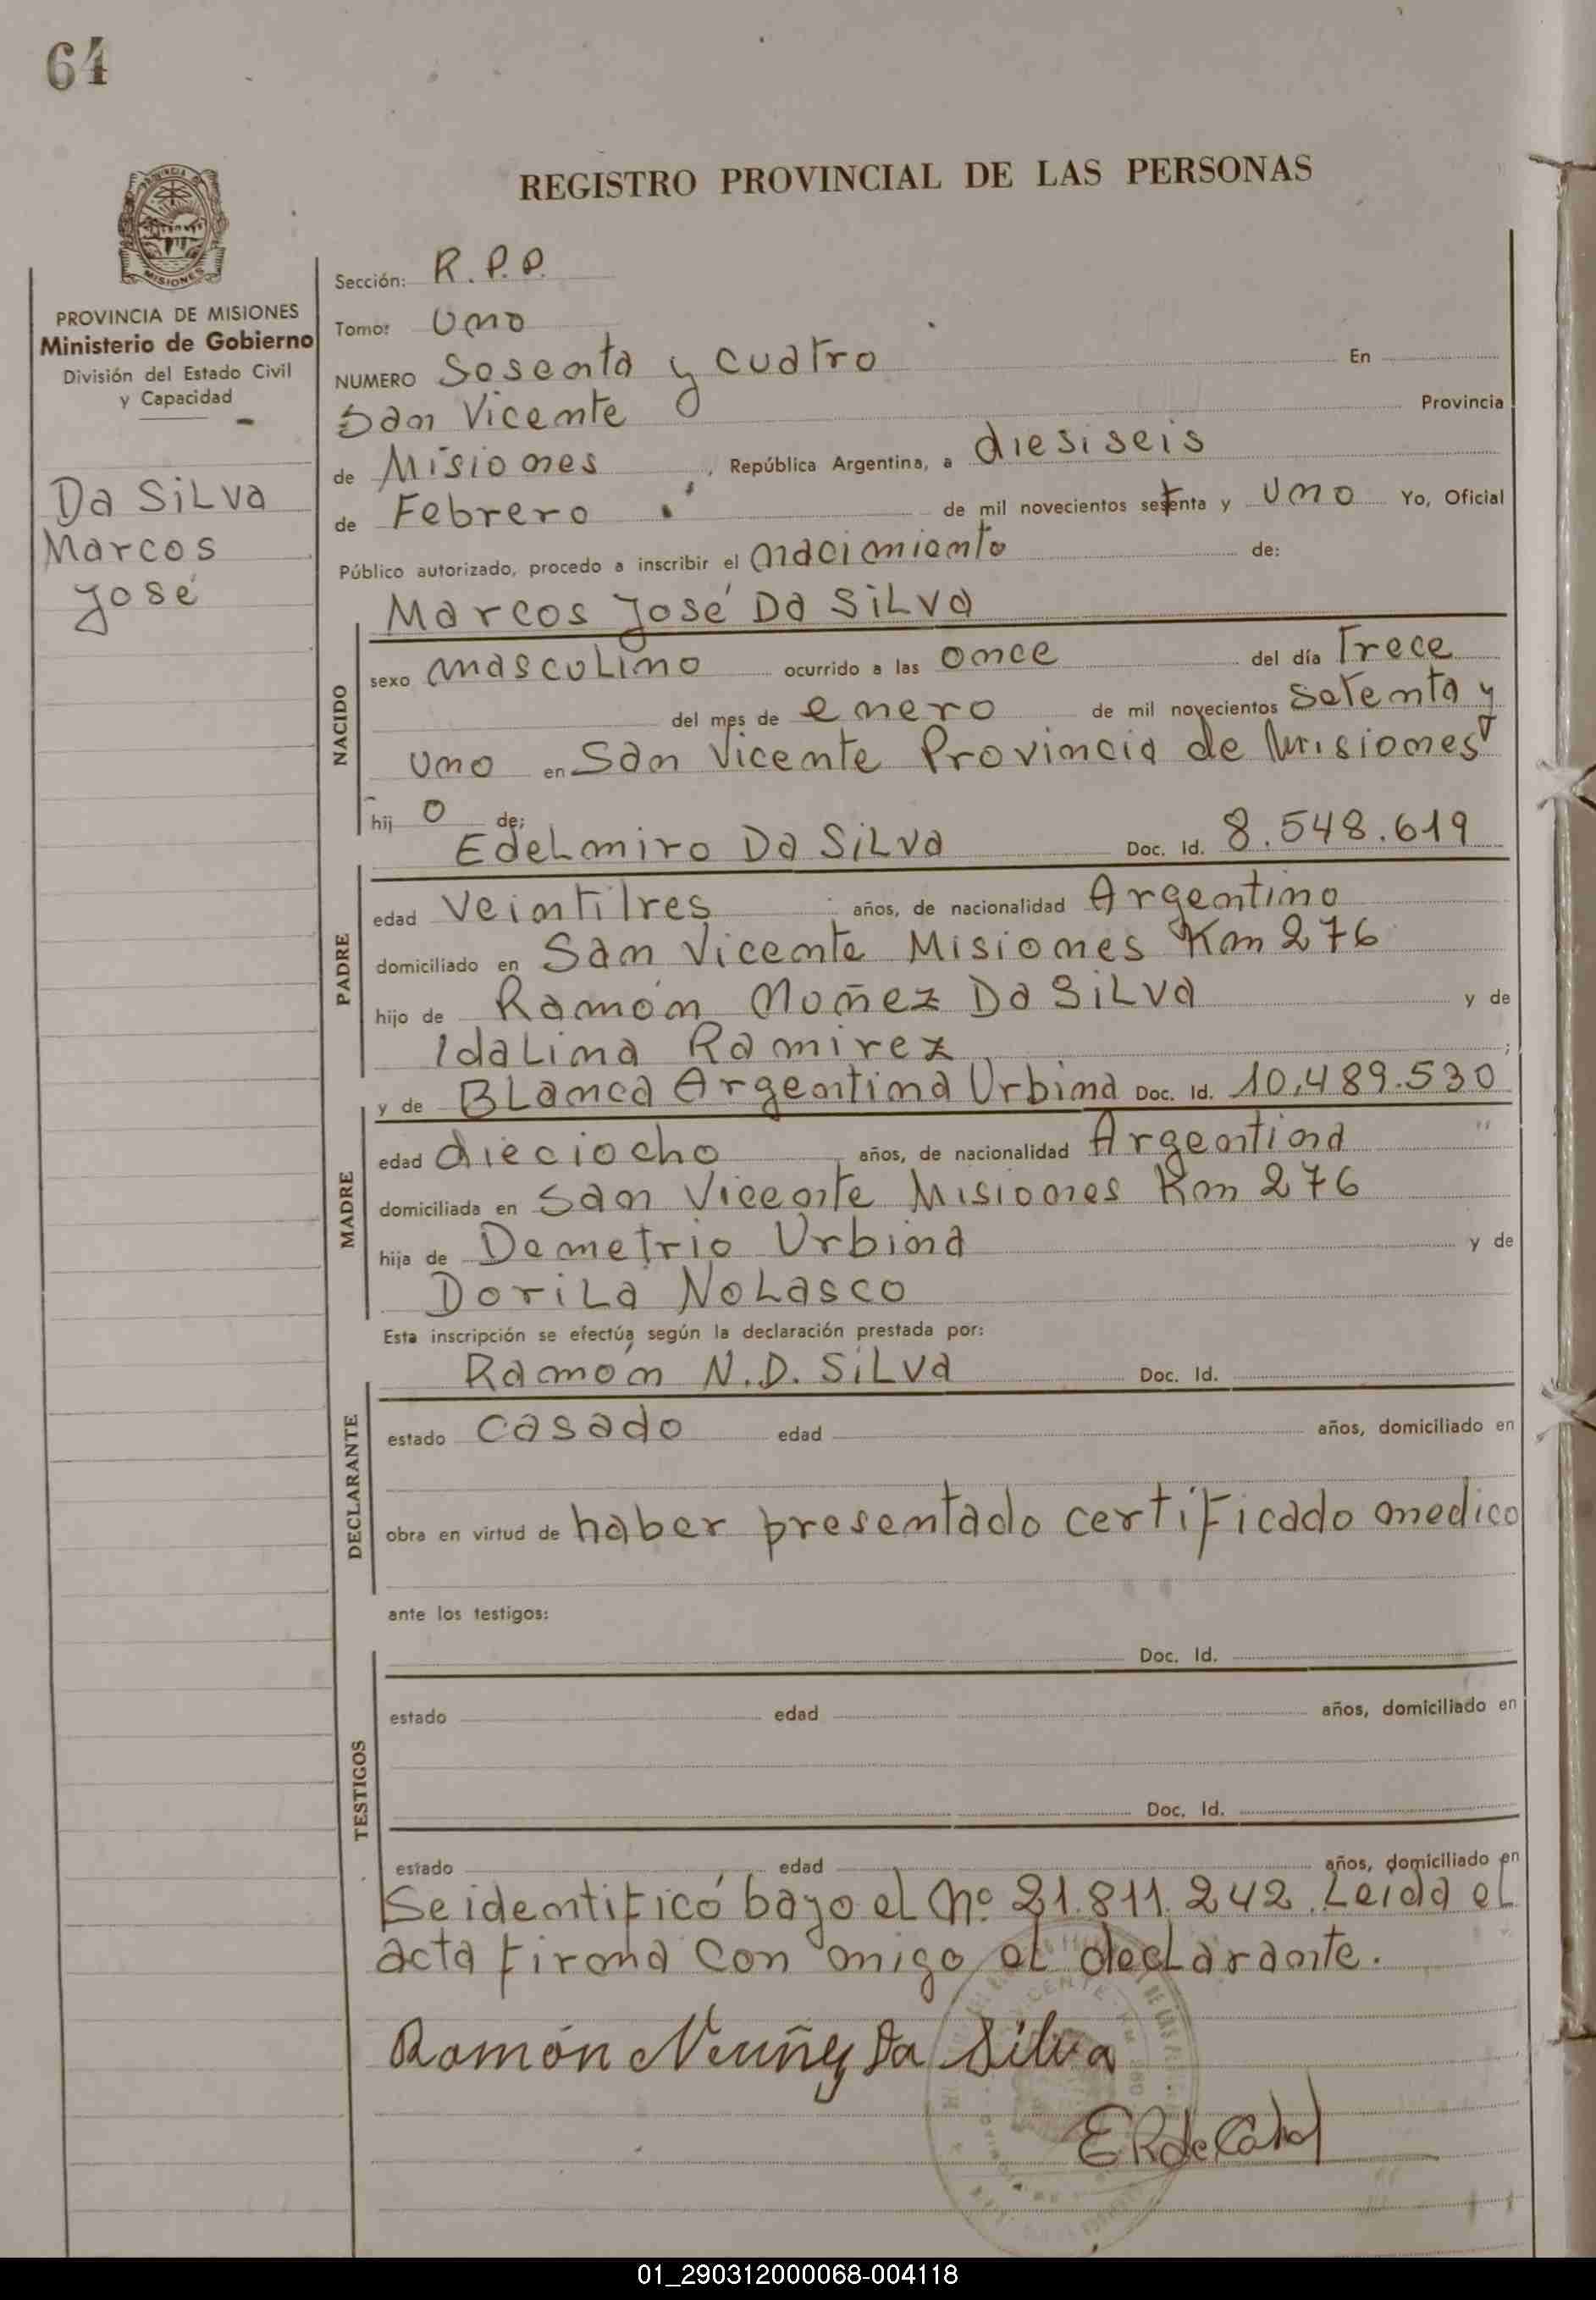 64
REGISTRO PROVINCIAL DE LAS PERSONAS
MISIONES
PROVINCIA DE MISIONES
Ministerio de Gobierno
División del Estado Civil
y Capacidad
Da Silva
Marcos
José
Sección: R. P. P.
Tomo: Uno
NUMERO Sesenta y cuatro En
San Vicente Provincia
de Misiones, República Argentina, a diesiseis
de Febrero de mil novecientos setenta y Uno Yo, Oficial
Público autorizado, procedo a inscribir el nacimiento de:
Marcos José Da Silva
NACIDO
sexo masculino ocurrido a las once del día Trece
del mes de enero de mil novecientos Setenta y
Uno en San Vicente Provincia de Misiones
hij o de;
Edelmiro Da Silva Doc. Id. 8.548.619
PADRE
edad Veintitres años, de nacionalidad Argentino
domiciliado en San Vicente Misiones Km 276
hijo de Ramón Nuñez Da Silva y de
Idalina Ramirez ;
y de Blanca Argentina Urbina Doc. Id. 10.489.530
MADRE
edad dieciocho años, de nacionalidad Argentina
domiciliada en San Vicente Misiones Km 276
hija de Demetrio Urbina y de
Dorila Nolasco
Esta inscripción se efectúa según la declaración prestada por:
Ramón N.D. Silva Doc. Id.
DECLARANTE
estado casado edad años, domiciliado en
obra en virtud de haber presentado certificado medico
ante los testigos:
Doc. Id.
TESTIGOS
estado edad años, domiciliado en
Doc. Id.
estado edad años, domiciliado en
Se identificó bajo el Nº 21.811.242. Leida el
acta firma con migo el declarante.
Ramón Nuñez Da Silva
01_290312000068-004118